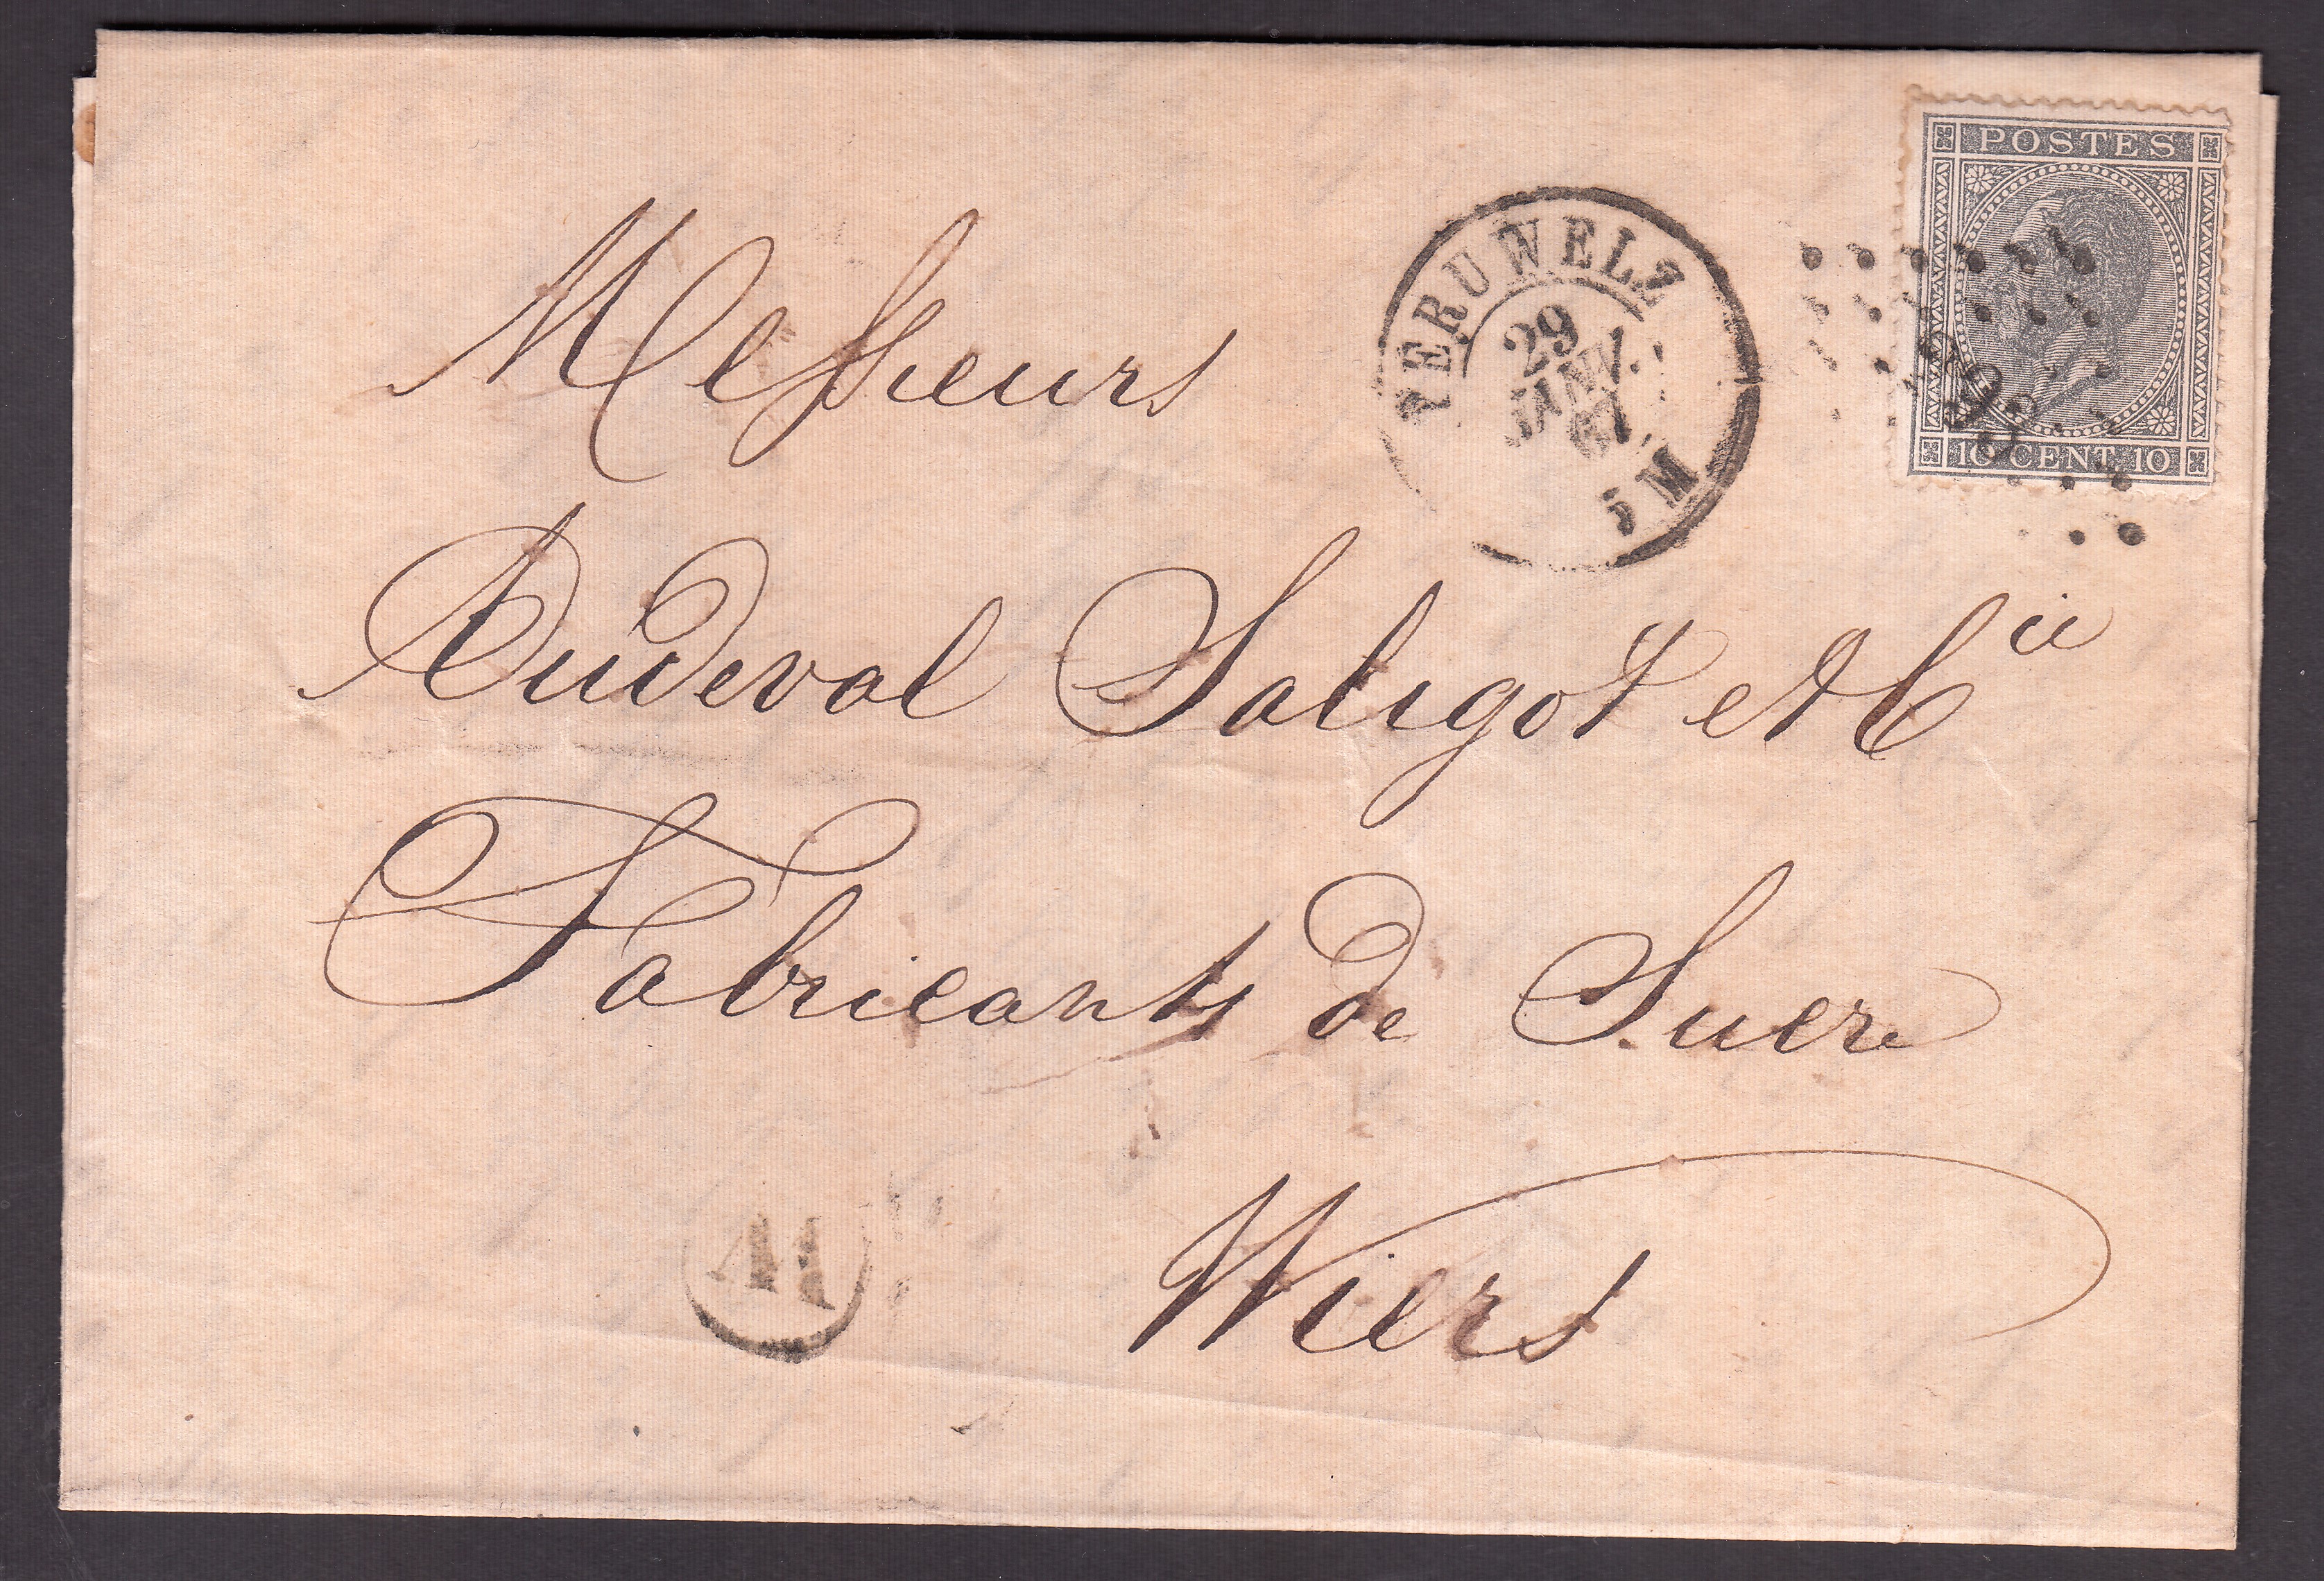 POSTES
PERUWELZ
29
JANV.
67
5 M
10 CENT 10
Messieurs
Dudeval Saligot et Cie
Fabricants de Sucre
Wiers